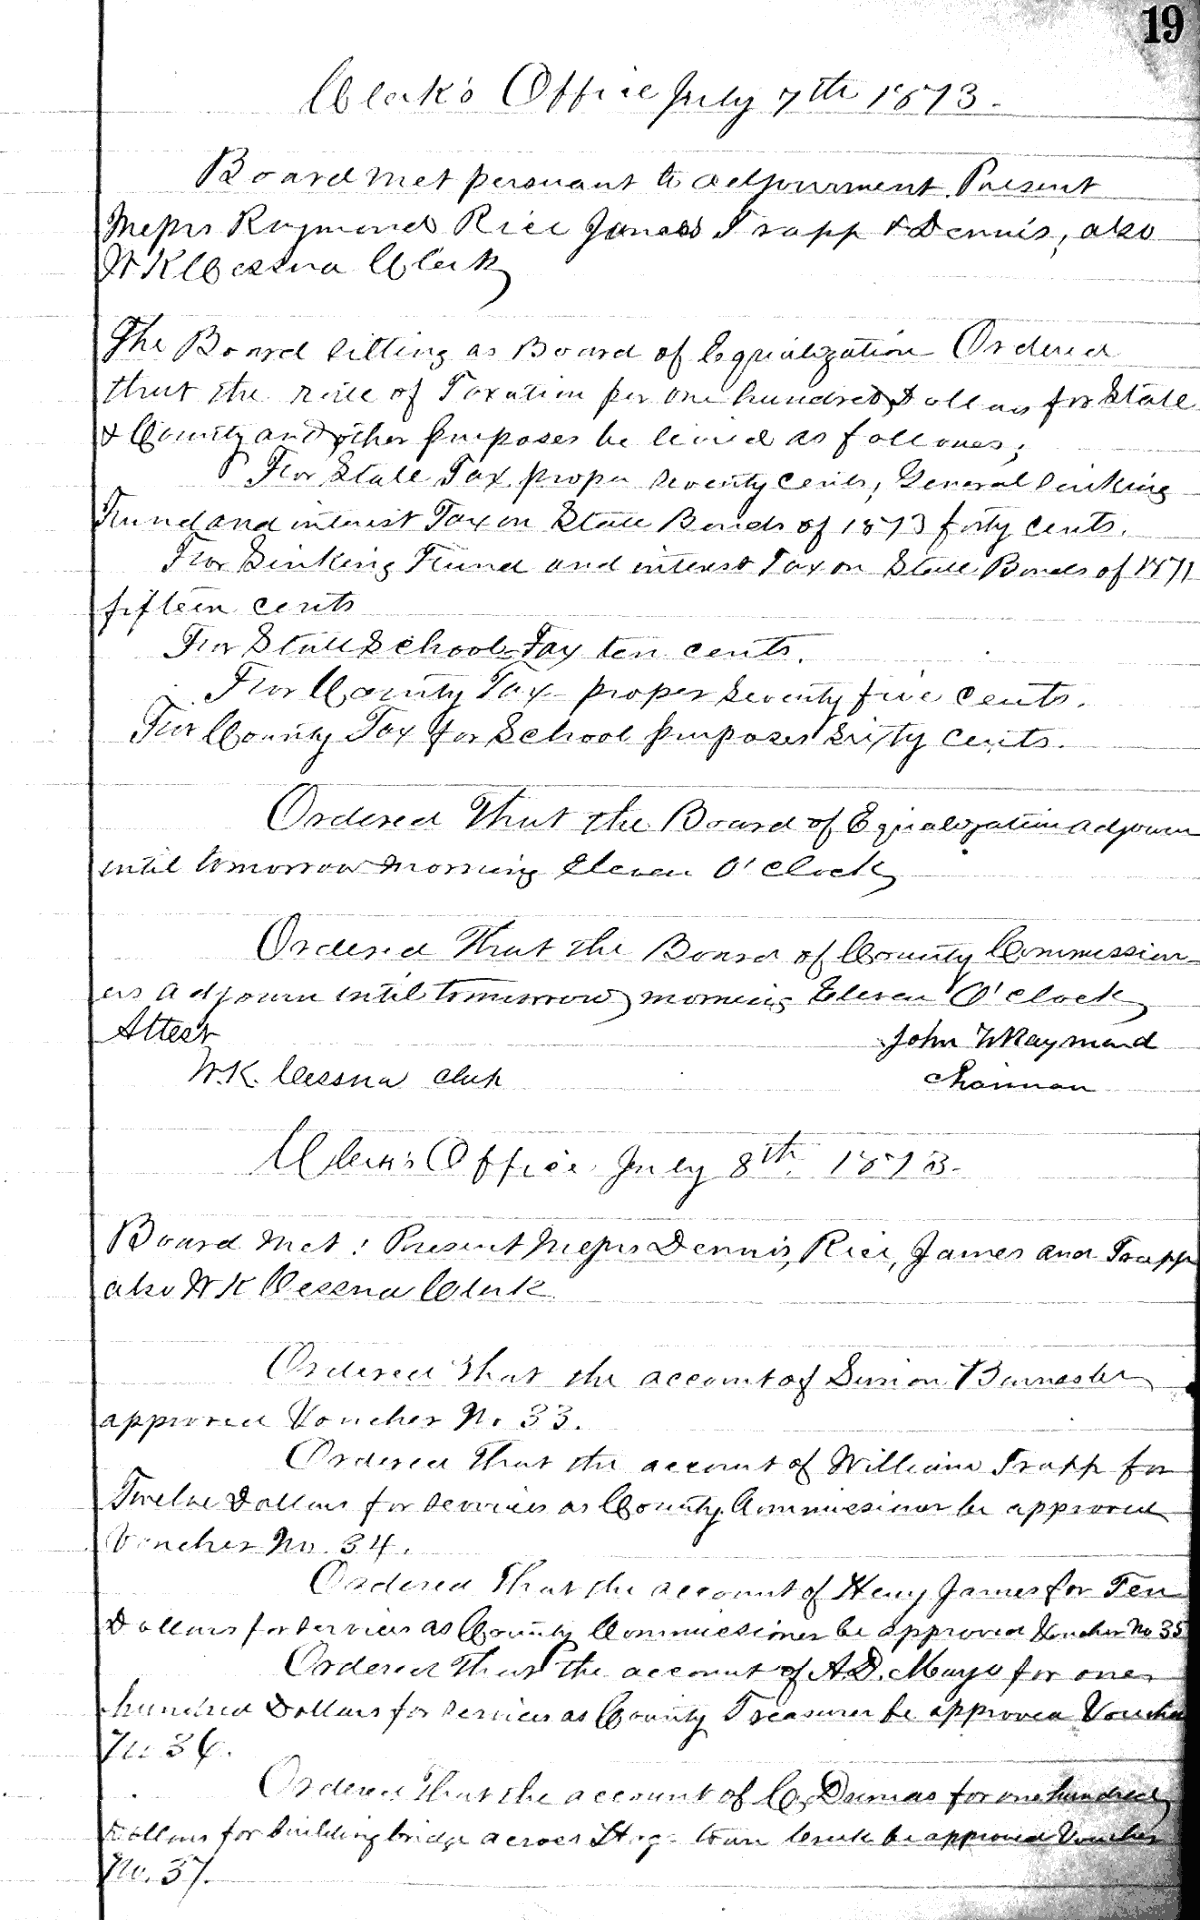 19
Clerk's Office July 7th 1873.
Board met persuant to adjournment. Present
Messrs Raymond Rice James Trapp & Dennis, also
W K Cessna Clerk
The Board sitting as Board of Equalization Ordered
that the rate of Taxation per one hundred dollars for State
& County and other purposes be levied as follows;
For State Tax proper seventy cents, General Sinking
Fund and interest Tax on State Bonds of 1873 forty cents.
For Sinking Fund and interest Tax on State Bonds of 1871
fifteen cents
For State School Tax ten cents.
For County Tax proper seventy five cents.
For County Tax for School purposes Sixty cents.
Ordered That the Board of Equalization adjourn
until tomorrow morning Eleven O'clock
Ordered That the Board of County Commission-
ers Adjourn until tomorrow morning Eleven O'clock
Attest John W Raymond
W.K. Cessna Clerk Chairman
Clerk's Office July 8th 1873.
Board Met: Present Messrs Dennis, Rice, James and Trapp
also W K Cessna Clerk
Ordered that the account of Simion
approved Voucher No 33.
Ordered That the account of William Trapp for
Twelve Dollars for services as County Commissioner be approved
Voucher No. 34.
Ordered that the account of Henry James for Ten
Dollars for services as County Commissioner be approved Voucher No 35
Ordered that the account of A.D. Mayo for one
hundred Dollars for services as County Treasurer be approved Voucher
No 36.
Ordered that the account of C. Dumas for one hundred
Dollars for building bridge across Hog-town Creek be approved Voucher
No. 37.